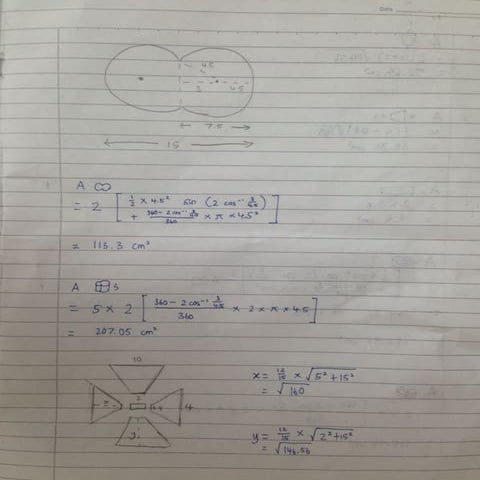 Date
4.5
3
4.5
7.5
15
A ∞
= 2 [ 1/2 × 4.5² sin (2 cos⁻¹ 3/4.5)
+ (360 - 2 cos⁻¹ 3/4.5)/360 × π × 4.5² ]
= 113.3 cm²
A s
= 5 × 2 [ (360 - 2 cos⁻¹ 3/4.5)/360 × 2 × π × 4.5 ]
= 207.05 cm²
10
x = 12/15 × √(5² + 15²)
= √160
4
y = 12/15 × √(2² + 15²)
= √146.56